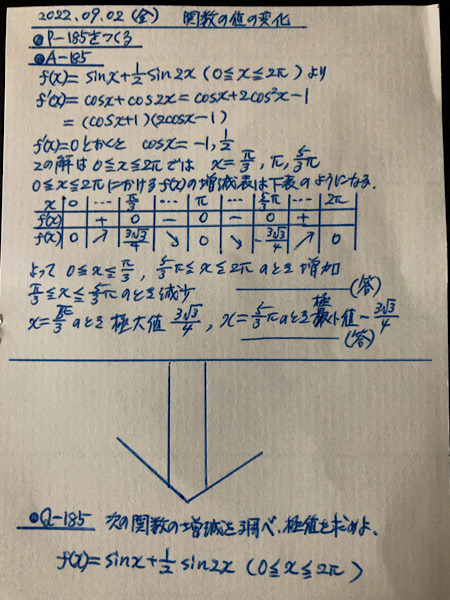 2022.09.02 (金) 関数の値の変化
●P-185をつくる
●A-185
f(x)= sinx+1/2 sin2x (0≦x≦2π) より
f'(x)= cosx+cos2x= cosx+2cos²x-1
= (cosx+1)(2cosx-1)
f'(x)=0とかくと cosx= -1, 1/2
この解は 0≦x≦2πでは x= π/3, π, 5/3π
0≦x≦2πにおけるf(x)の増減表は下表のようになる.
x 0 … π/3 … π … 5/3π … 2π
f'(x) + 0 - 0 - 0 +
f(x) 0 ↗ 3√3/4 ↘ 0 ↘ -3√3/4 ↗ 0
よって 0≦x≦π/3, 5/3π≦x≦2πのとき 増加
π/3≦x≦5/3πのとき減少 (答)
x=π/3のとき 極大値 3√3/4, x=5/3πのとき 極小値 -3√3/4
(答)
●Q-185 次の関数の増減を調べ、極値を求めよ.
f(x)= sinx+1/2 sin2x (0≦x≦2π)